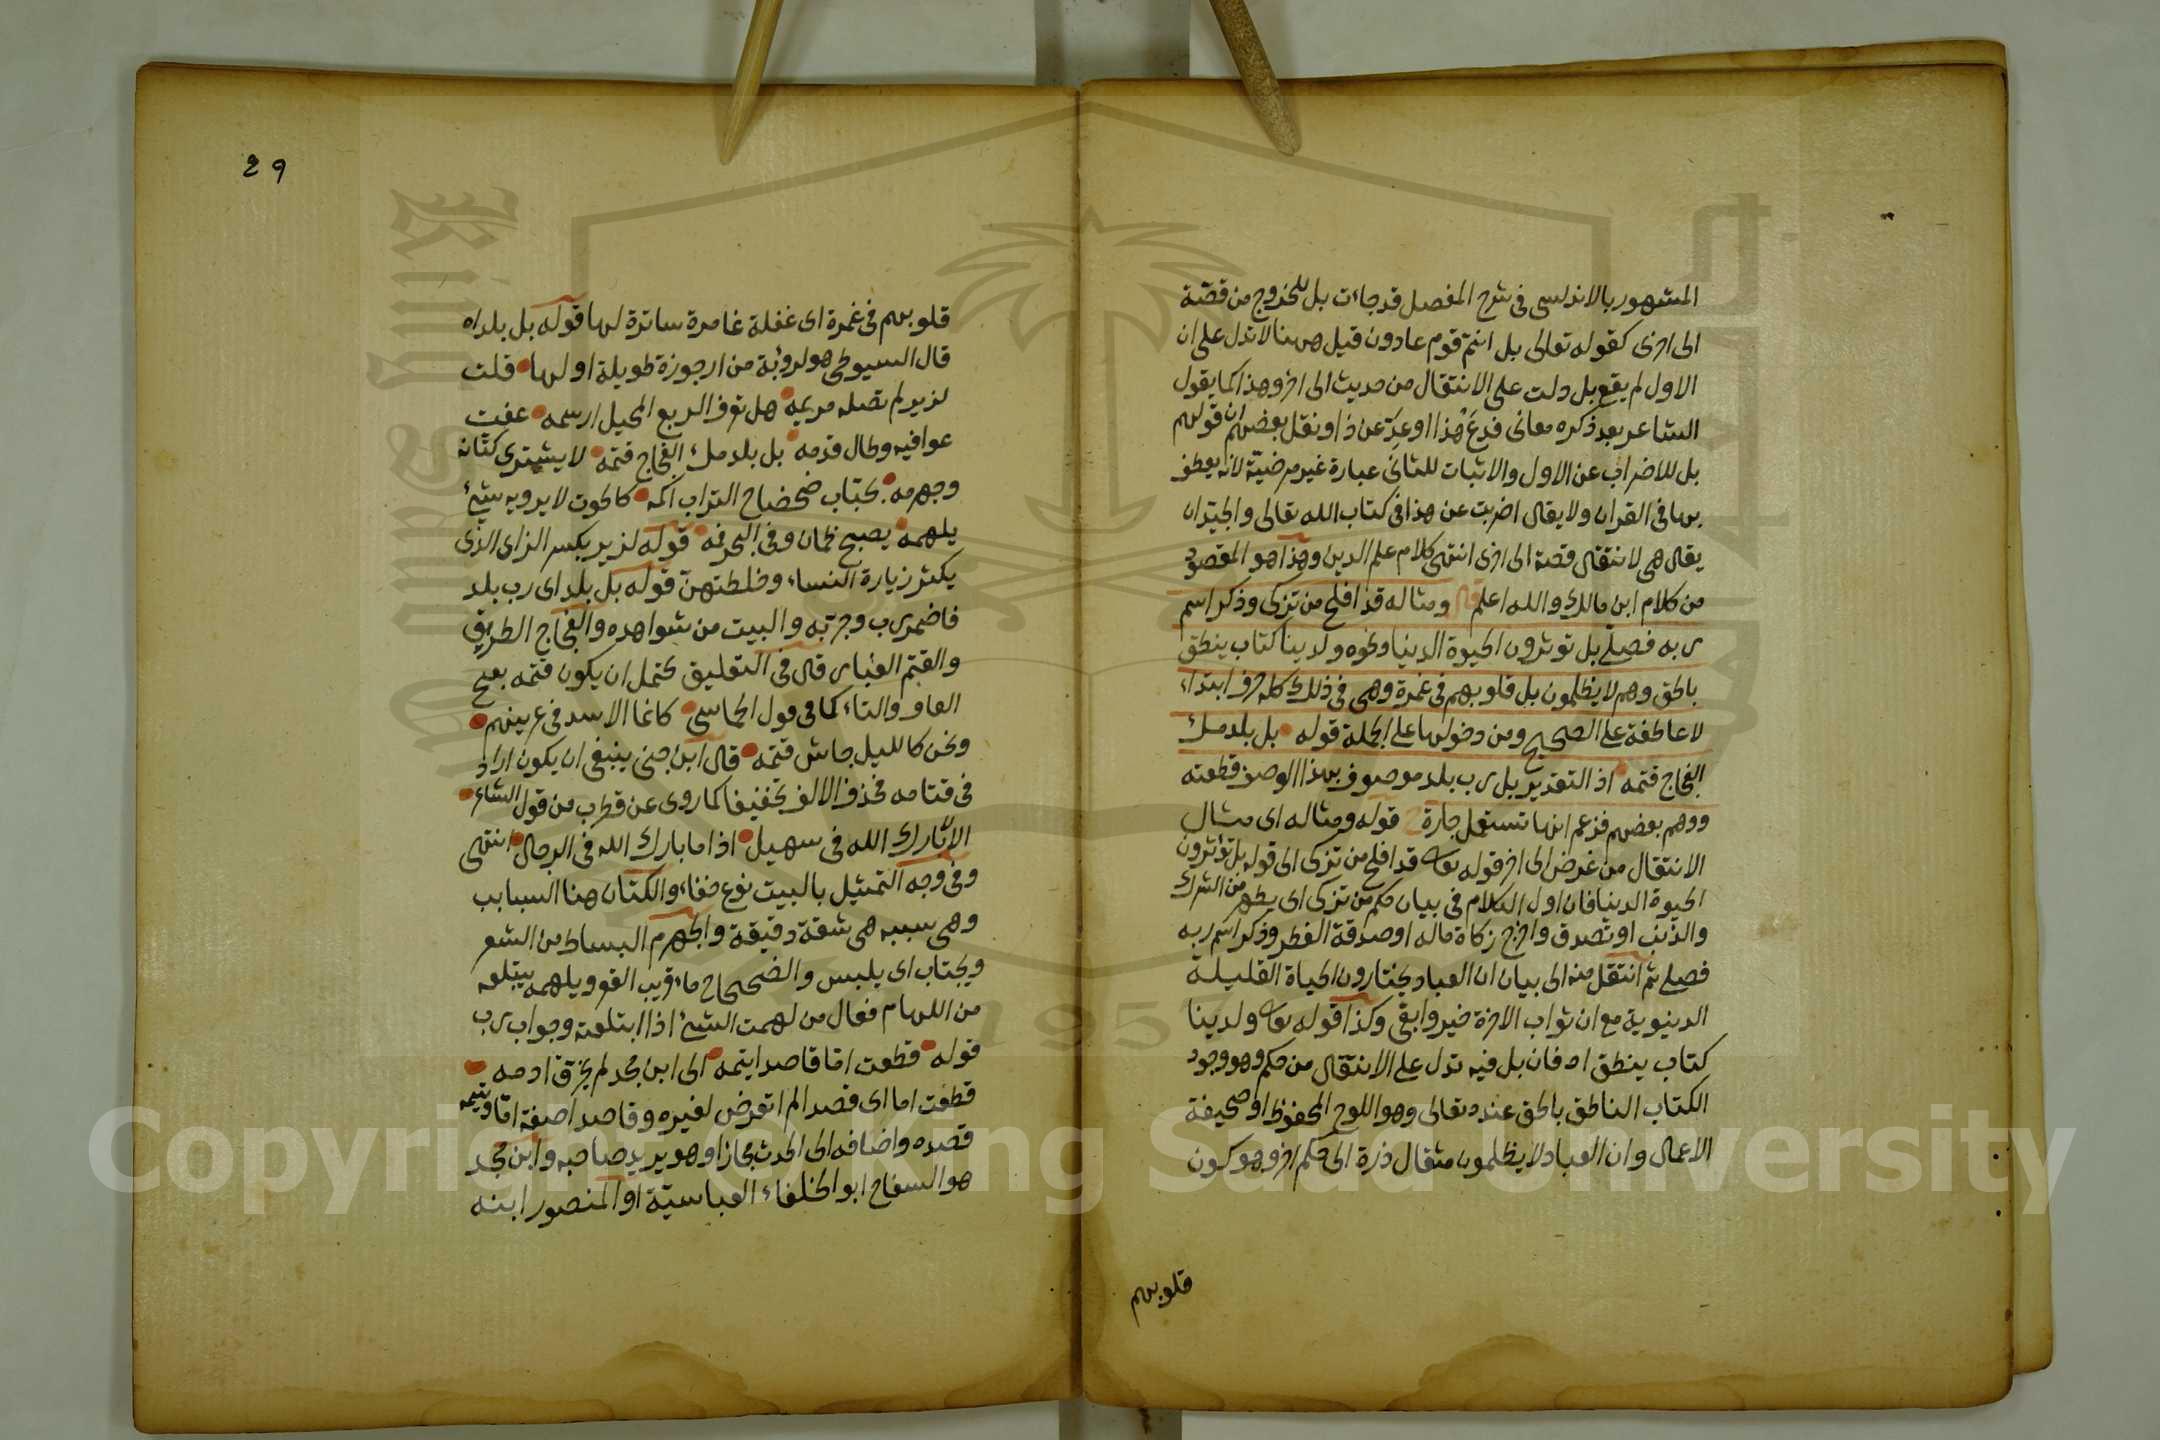 المشهور بالاندلسى فى شرح المفصل قد جاءت بل للخروج من قصة
الى اخرى كقوله تعالى بل انتم قوم عادون قيل ههنا لا تدل على ان
الاول لم يقع بل دلت على الانتقال من حديث الى اخر وهذا كما يقول
الشاعر بعد ذكره معانى فدع هذا او عد عن ذا ونقل بعضهم ان قولهم
بل للاضراب عن الاول والاثبات للثانى عبارة غير مرضية لانه يعطف
بها فى القران ولا يقال اضربت عن هذا فى كتاب الله تعالى والجيد ان
يقال هى لانتقال قصة الى اخرى انتهى كلام علم الدين وهذا هو المقصود
من كلام ابن مالك والله اعلم قال ومثاله قد افلح من تزكى وذكر اسم
ربه فصلى بل تؤثرون الحيوة الدنيا ونحوه ولدينا كتاب ينطق
بالحق وهم لا يظلمون بل قلوبهم فى غمرة وهى فى ذلك كله حرف ابتداء
لا عاطفة على الصحيح ومن دخولها على الجملة قوله بل بلد ملء
الفجاج قتمه اذ التقدير بل رب بلد موصوف بهذا الوصف قطعته
ووهم بعضهم فزعم انها تستعمل جارة قوله ومثاله اى مثال
الانتقال من غرض الى اخر قوله تعالى قد افلح من تزكى الى قوله بل تؤثرون
الحيوة الدنيا فان اول الكلام فى بيان حكم من تزكى اى يطهر من الشرك
والذنب او تصدق واخرج زكاة ماله او صدقة الفطر وذكر اسم ربه
فصلى ثم انتقل منه الى بيان ان العباد يختارون الحياة القليلة
الدنيوية مع ان ثواب الاخرة خير وابقى وكذا قوله تعالى ولدينا
كتاب ينطق اه فان بل فيه تدل على الانتقال من حكم وهو وجود
الكتاب الناطق بالحق عنده تعالى وهو اللوح المحفوظ او صحيفة
الاعمال وان العباد لا يظلمون مثقال ذرة الى حكم اخر وهو كون
قلوبهم
29
قلوبهم فى غمرة اى غفلة غامرة ساترة لها قوله بل بلد اه
قال السيوطى هو لرؤبة من ارجوزة طويلة اولها قلت
لزير لم تصله مريمه هل تعرف الربع المحيل ارسمه عفت
عوافيه وطال قدمه بل بلد ملء الفجاج قتمه لا يشترى كتانه
وجهرمه يجتاب ضحضاح التراب اكمه كالحوت لا يرويه شئ
يلهمه يصبح ظمان وفى البحر فمه قوله لزير بكسر الزاى الذى
يكثر زيارة النساء وخلطتهن قوله بل بلد اى رب بلد
فاضمر رب وجر به والبيت من شواهده والفجاج الطريق
والقتم الغبار قال فى التعليق يحتمل ان يكون قتمه بفتح
القاف والتاء كما فى قول الحماسى كاننا الاسد فى عرينهم
ونحن كالليل جاش قتمه قال ابن جنى ينبغى ان يكون اراد
فى قتامه فحذف الالف تخفيفا كما روى عن قطرب من قول الشاعر
الا لا بارك الله فى سهيل اذا ما بارك الله فى الرجال انتهى
وفى وجه التمثيل بالبيت نوع خفاء والكتان هنا السبايب
وهى سبيبه هى شقة دقيقة والجهرم البساط من الشعر
ويجتاب اى يلبس والضحضاح ماء قريب القعر ويلهمه يبتلعه
من اللهام فعال من لهمت الشئ اذا ابتلعته وجواب رب
قوله قطعت اما قاصدا يتمه الى ابن مجد لم يخرق ادمه
قطعت اما اى قصدا لم اتعرض لغيره وقاصدا صفة اما ويتمه
قصده واضافه الى الحدث مجازا وهو يريد صاحبه وابن مجد
هو السفاح ابو الخلفاء العباسية او المنصور ابنه
1957
Copyright © King Saud University